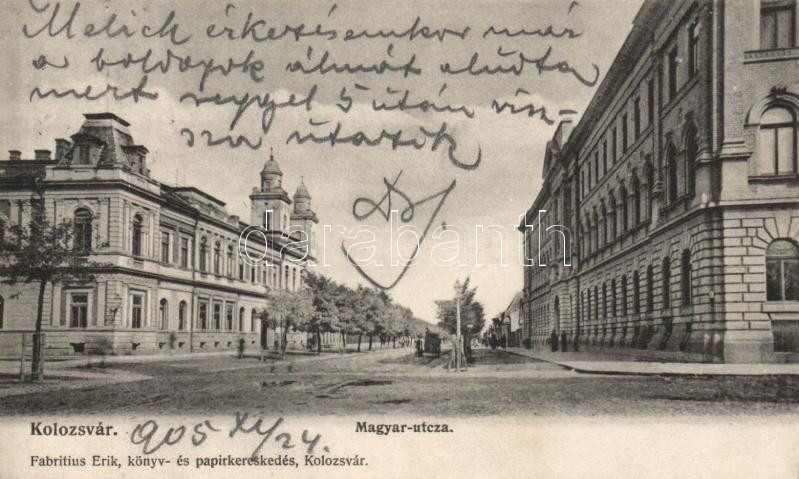 Melich érkezésemkor már
a boldogok álmát aludta
mert reggel 5 után visz-
sza utazok
darabanth
Kolozsvár. Magyar-utcza.
905 XII/24.
Fabritius Erik, könyv- és papirkereskedés, Kolozsvár.